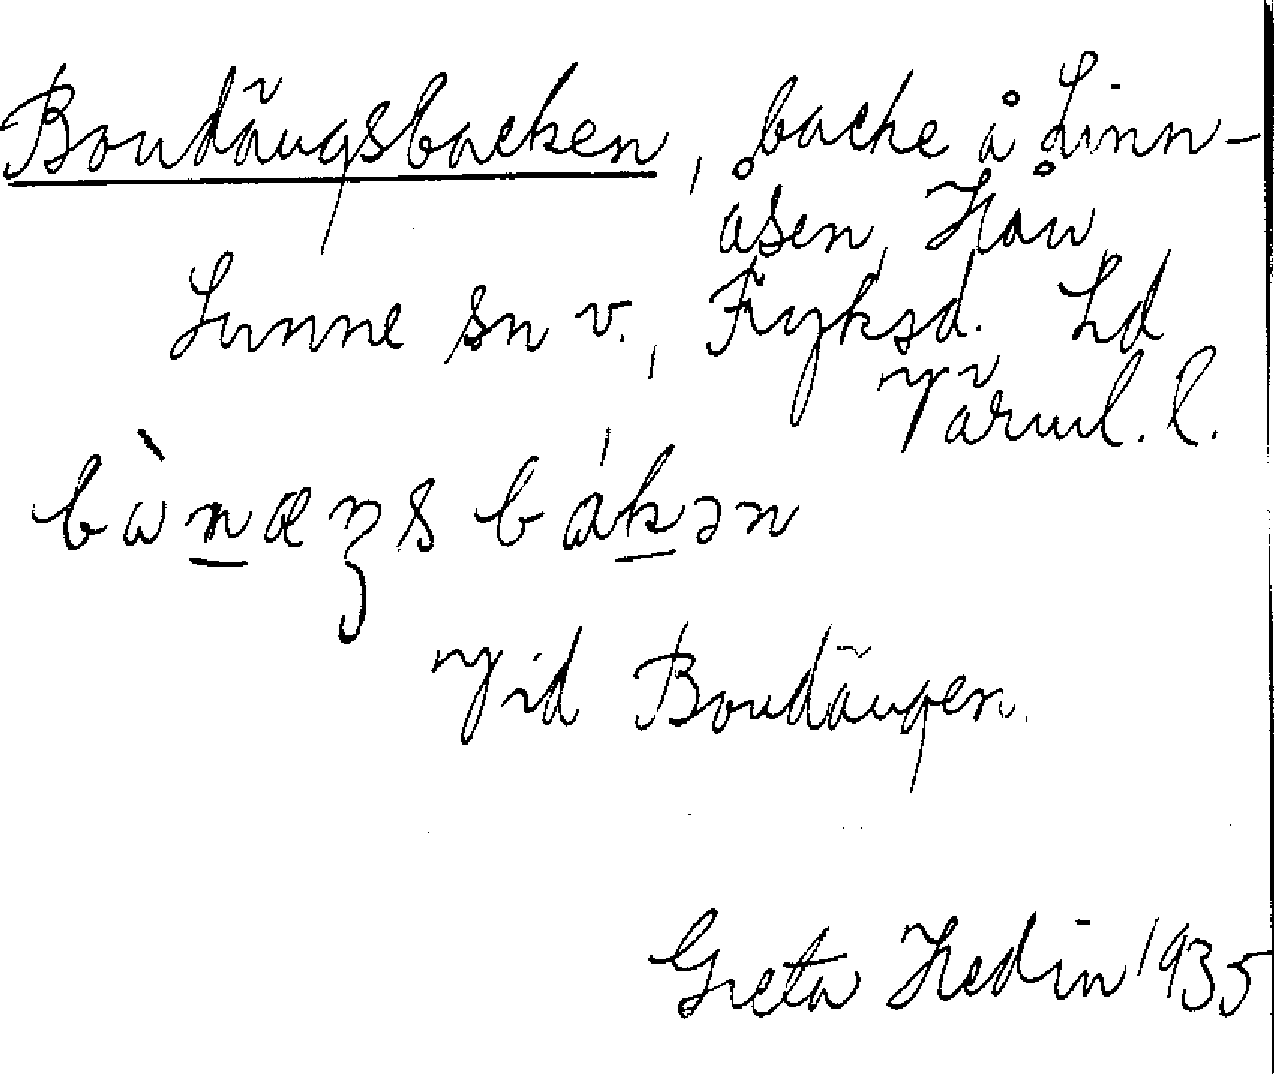 Bondängsbacken, backe å Linn-
åsen, Hån
Sunne sn v., Fryksd. hd
Värml. l.
bònæŋs bákən
Vid Bondängen.
Greta Hedin 1935